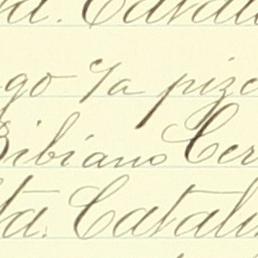 ta. Catali
go y/a pize
Bibiano Cer
ta. Catali